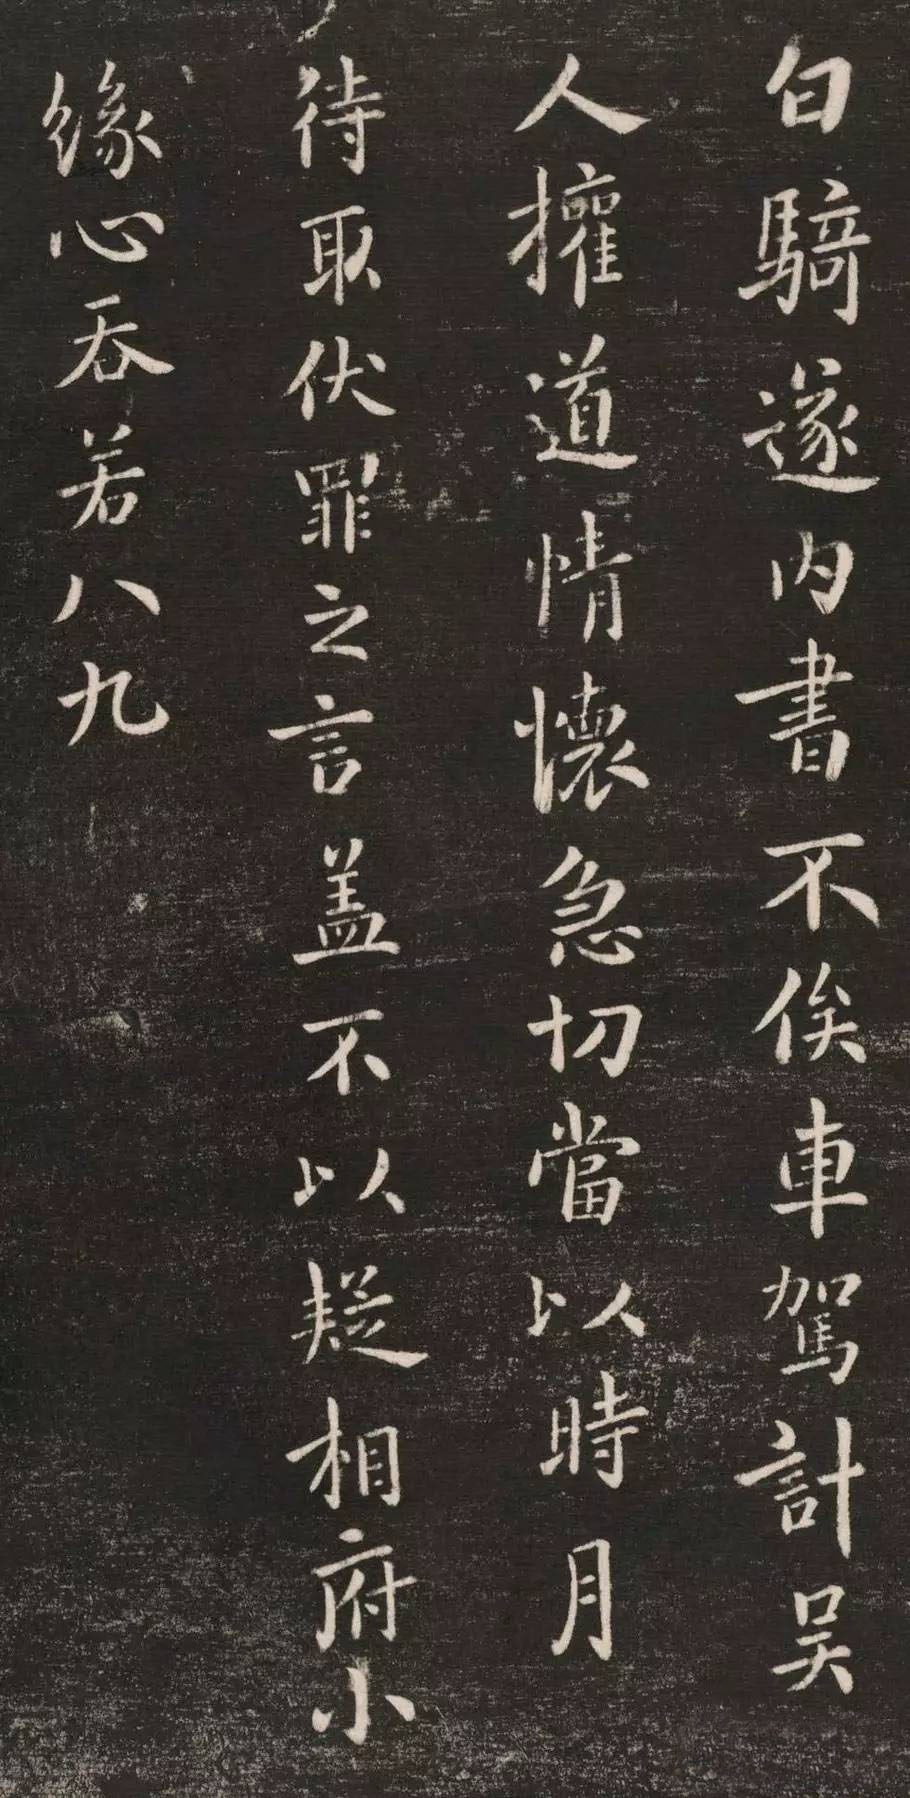 白騎遂內書不俟車駕計吳
人擁道情懷急切當以時月
待取伏罪之言盖不以疑相府小
緣心吞若八九